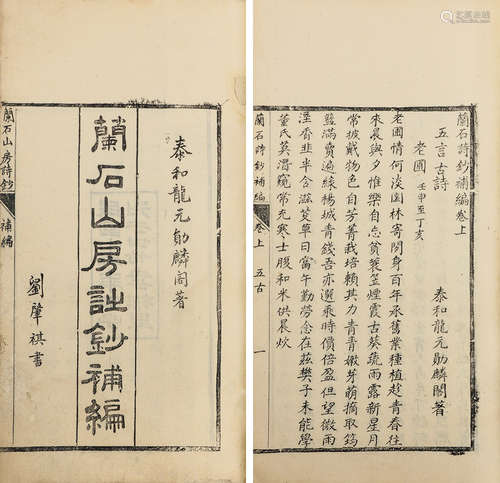 泰和龍元勛麟閣著
蘭石山房詩鈔補編
劉肇祺書
蘭石山房詩鈔 補編
蘭石詩鈔補編卷上
泰和龍元勛麟閣著
五言古詩
老圃 壬申至丁亥
老圃情何淡園林寄閑身百年承舊業種植趁青春往
來晨與夕惟樂自忘貧蓑笠煙霞古蔬雨露新星月
常披戴物色自芳菁栽培賴其力青青嫩芽萌摘取筠
籃滿賣遍綠楊城青錢吾亦選乘時價倍盈但望微雨
溼香韭半含滋草日當午勤勞念在茲樊子未能學
董氏莫潛窺常充寒士腹和米供晨炊
蘭石詩鈔補編 卷上 五古 一